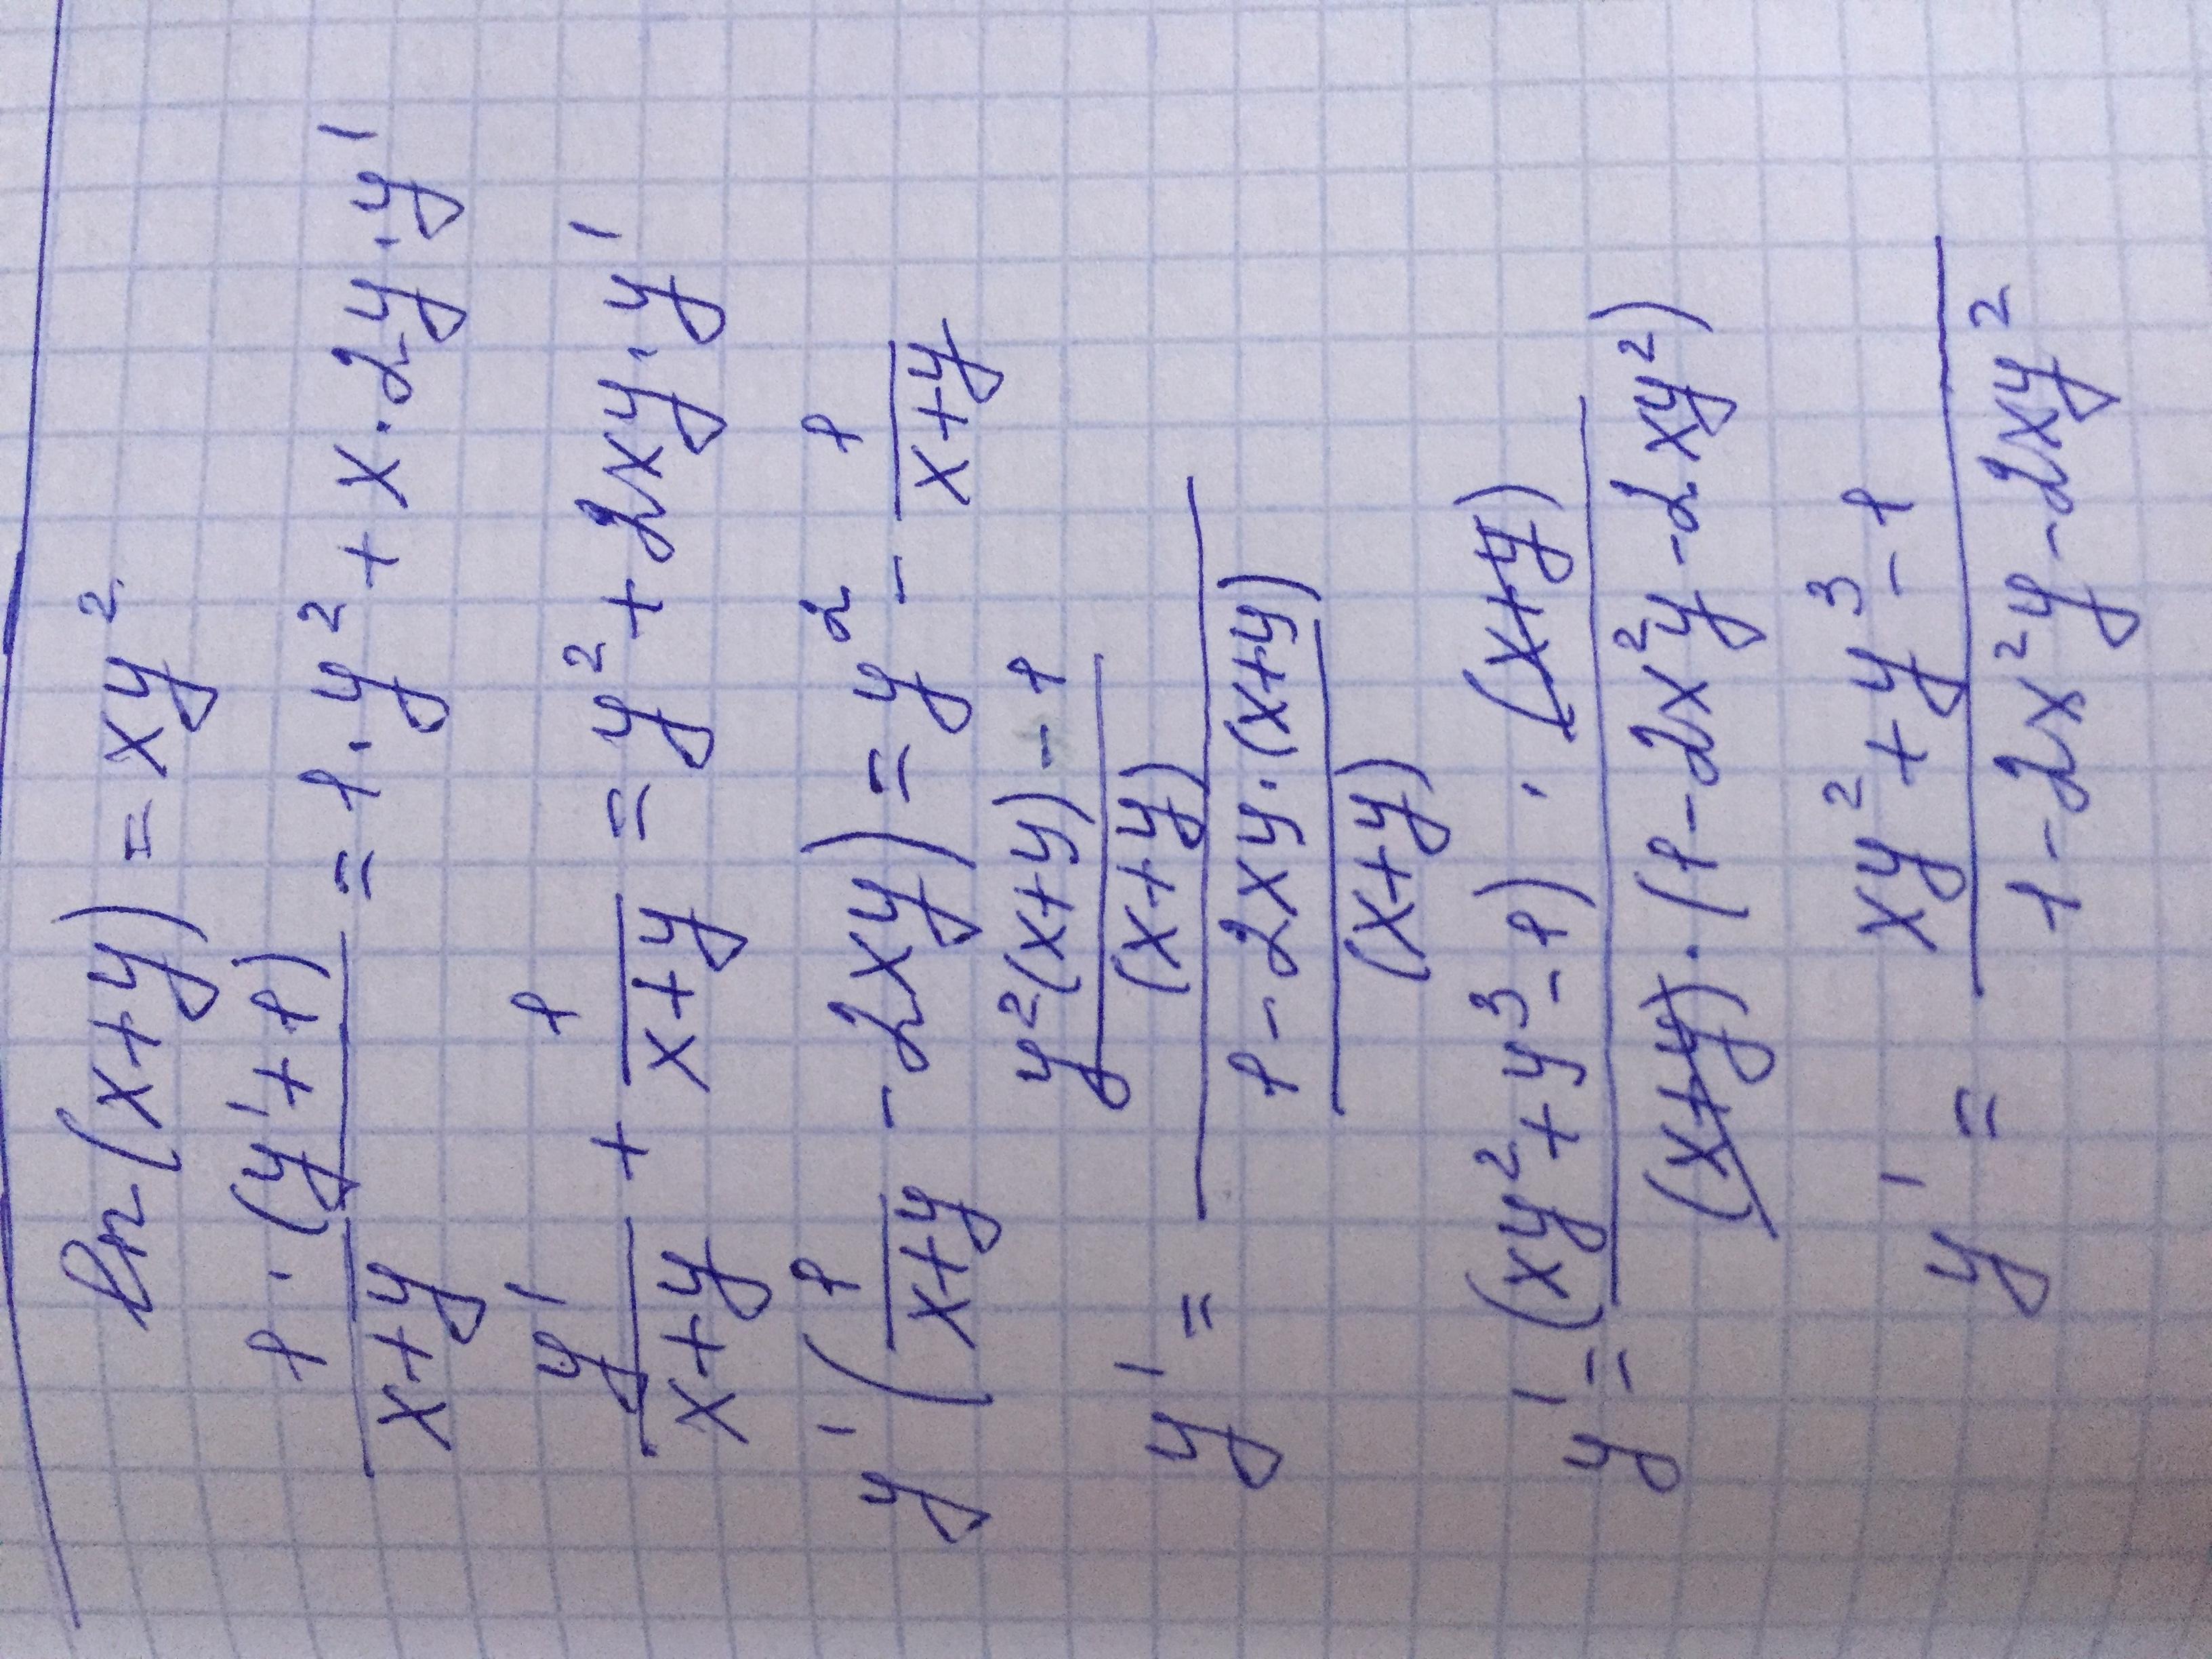 ln(x+y) = xy²
1·(y'+1)/(x+y) = 1·y² + x·2y·y'
y'/(x+y) + 1/(x+y) = y² + 2xy·y'
y'(1/(x+y) - 2xy) = y² - 1/(x+y)
y' = ((y²(x+y) - 1)/(x+y))/((1 - 2xy·(x+y))/(x+y))
y' = ((xy² + y³ - 1)·(x+y))/((x+y)·(1 - 2x²y - 2xy²))
y' = (xy² + y³ - 1)/(1 - 2x²y - 2xy²)